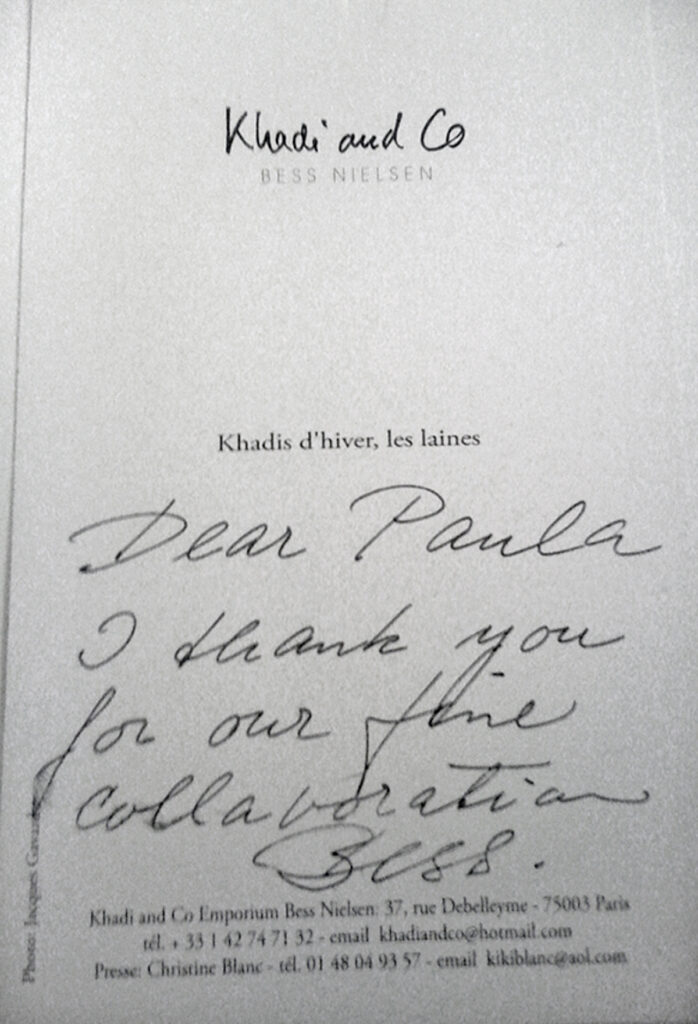 Khadi and Co
BESS NIELSEN
Khadis d'hiver, les laines
Dear Paula
I thank you
for our fine
collavoration
Bess.
Khadi and Co Emporium Bess Nielsen: 37, rue Debelleyme - 75003 Paris
tél. + 33 1 42 74 71 32 - email khadiandco@hotmail.com
Presse: Christine Blanc - tél. 01 48 04 93 57 - email kikiblanc@aol.com
Photo: Jacques